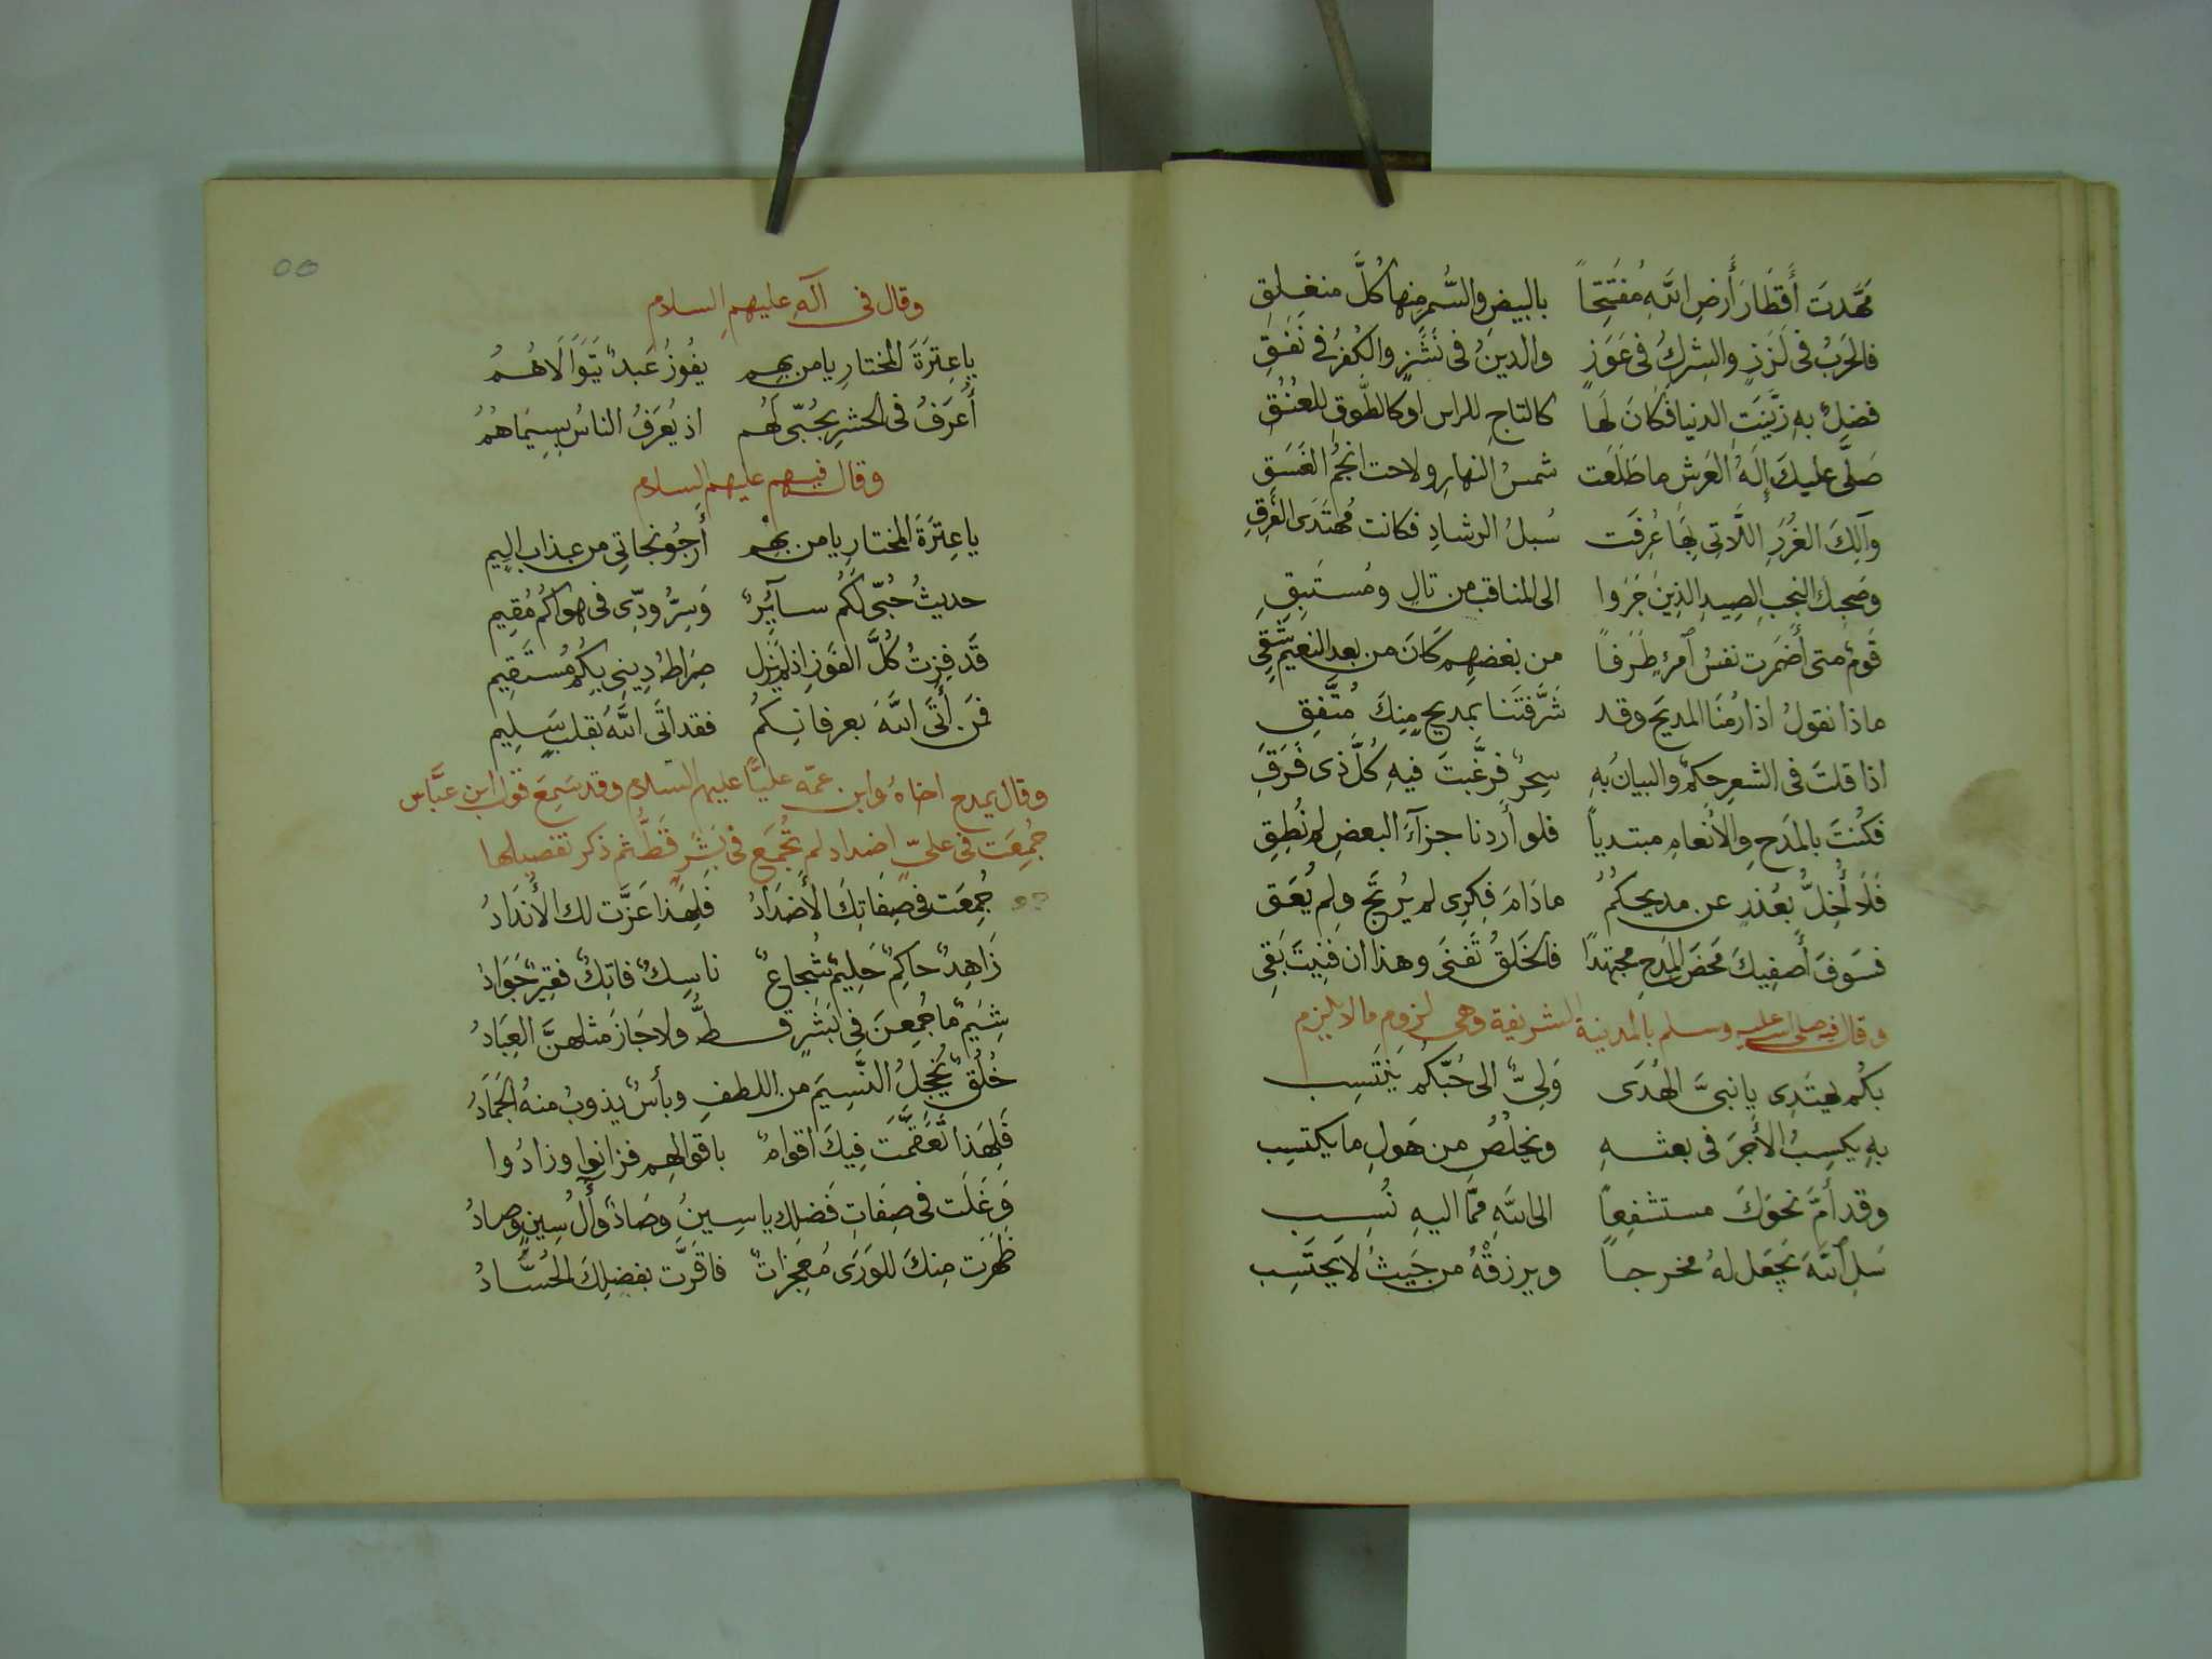 مَهَّدتَ أَقطَارَ أَرضِ اللَّهِ مُفتَتِحًا بالبيضِ والسُّمرِ منها كُلَّ منغلِقِ
فالحَربُ فى لَزَزٍ والشِركُ فى عَوَزٍ والدينُ فى نَشَزٍ والكُفرُ فى نَفَقِ
فضلٌ بهِ زَيَّنَتِ الدنيا فكانَ لَهَا كالتاجِ للراس اوكالطَّوقِ للعُنُقِ
صَلَّى عليكَ إِلَهُ العَرشِ ما طَلَعَت شمسُ النهارِ ولاحت انجُمُ الغَسَقِ
وآلِكَ الغُرَرِ اللَّاتِى بِهَا عُرِفَت سُبلُ الرشادِ فكانت مُهتَدَى الغَرِقِ
وصَحبِكَ النجبِ الصِيدِ الذِينَ جَرَوا الى المناقب من تالٍ ومُستَبِقِ
قَومٌ متى أَضمَرت نفسُ ٱمرءٍ طَرَفاً من بغضهم كَانَ من بعدِ النعيمِ شَقِى
ماذا نقولُ اذا رُمنَا المديَح وقد شَرَّفتَنا بمديحٍ مِنكَ مُتَّفِقِ
اذا قلتَ فى الشعرِ حكمٌ والبيانُ بهِ سِحرٌ فرغَّبتَ فيهِ كُلَّ ذى فَرَقِ
فكُنتَ بالمَدحِ والأنعامِ مبتدياً فلو أَردنا جزآءَ البعضِ لم نُطِقِ
فَلَا أُخِلُّ بعُذرٍ عن مديحكُمُ مادَامَ فِكرِى لم يُرتَجَ ولم يُعَقِ
فسَوفَ أُصفِيكَ مَحَضَ المَدحِ مجتهدًا فالخَلقُ تَفنَى وهذا ان فَنِيتَ بَقِى
وقال فيه صلى الله عليه وسلم بالمدينة الشريفة وهى لزوم مالا يلزم
بكُم يَهتَدِى يا نبىَّ الهُدَى وَلِىٌّ الى حُبِّكُم يَنتَسِب
بهِ يكسِبُ الأَجرَ فى بعثهِ ويخلُصُ من هَولِ ما يكتسِب
وقد أَمَّ نحوَكَ مستشفِعاً الى اللَّهِ مِمَّا اليهِ نُسِب
سَلِ ٱللَّهَ يَجعَل لهُ مخرجاً ويرزقْهُ من حَيثُ لا يحتَسِب
٥٥
وقال فى آلهِ عليهمِ السلام
يا عِترَةَ المختارِ يا من بِهِم يفُوزُ عَبدٌ يَتَوَالَاهُمُ
أُعرَفُ فى الحشرِ بحُبّى لَهُم اذ يُعرَفُ الناسُ بسِيمَاهُمُ
وقال فيهم عليهم السلام
يا عِترَةَ المختارِ يا من بِهِم أَرجُو نجاتِى من عذابٍ اليم
حديثُ حُبّى لَكُم سآئِرٌ وَسِرُّ ودّى فى هواكُم مُقِيم
قَد فِزتُ كُلَّ الفَوزِ اذ لم يَزَل صِرَاطُ دِينِى بِكُم مُستَقِيم
فمَن أَتَى اللَّهَ بعرفانِكُم فقد اتَى اللَّهَ بقلبٍ سَلِيم
وقال يمدح اخاهُ وابن عمّه عليًّا عليهم السلام وقد سَمِعَ قولَ ابن عبَّاس
جُمِعَت فى علىّ اضداد لم تُجمَع فى بَشَرٍ قَطُّ ثم ذكر تفصيلها
جُمِعَت فى صِفَاتِكَ الأَضدَادُ فَلِهَذَا عَزَّت لك الأَندَادُ
زَاهِدٌ حاكِمٌ حَلِيمٌ شُجاعٌ ناسِكٌ فاتكٌ فقِيرٌ جَوَادُ
شِيَمٌ ما جُمِعنَ فِى بَشَرٍ قطُّ ولا حَازَ مثلهنَّ العِبَادُ
خُلُقٌ يُخجِلُ النَّسِيمَ من اللطفِ وبأسٌ يذوبُ منهُ الجَمَادُ
فَلِهَذا تَعَمَّقَت فِيكَ اقوامٌ باقوالِهِم فزانوا وزادُوا
وَغَلَت فى صِفَاتِ فَضلِك ياسِينُ وصَادٌ وآلُ سِينٍ وصادُ
ظَهَرَت مِنكَ للوَرَى مُعجِزاتٌ فاقَرَّت بفضلِكَ الحُسَّادُ